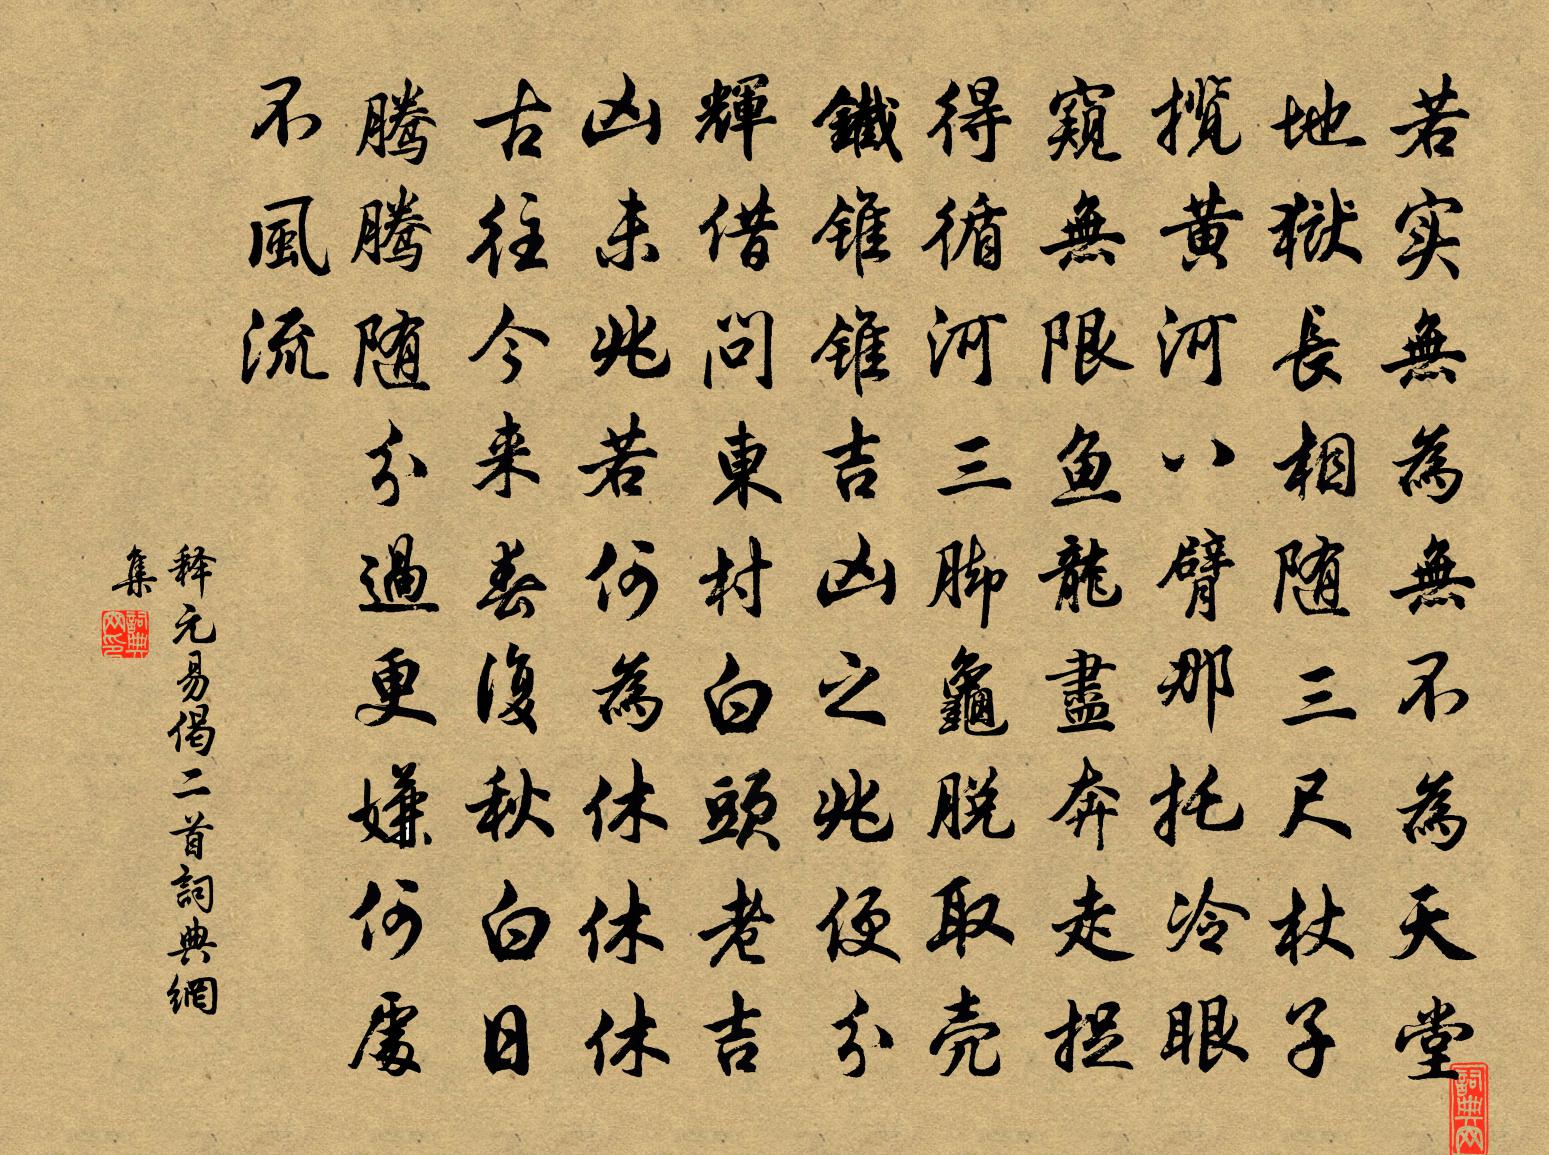 若实無為無不為天堂
地獄長相随三尺杖子
搅黄河八臂那托冷眼
窺無限鱼龍盡奔走捉
得循河三脚龜脱取壳
鐵錐錐吉凶之兆便分
輝借問東村白頭老吉
凶未兆若何為休休休
古往今来春復秋白日
騰騰随分過更嫌何處
不風流
释元易偈二首詞典網
集
詞典网印
詞典网